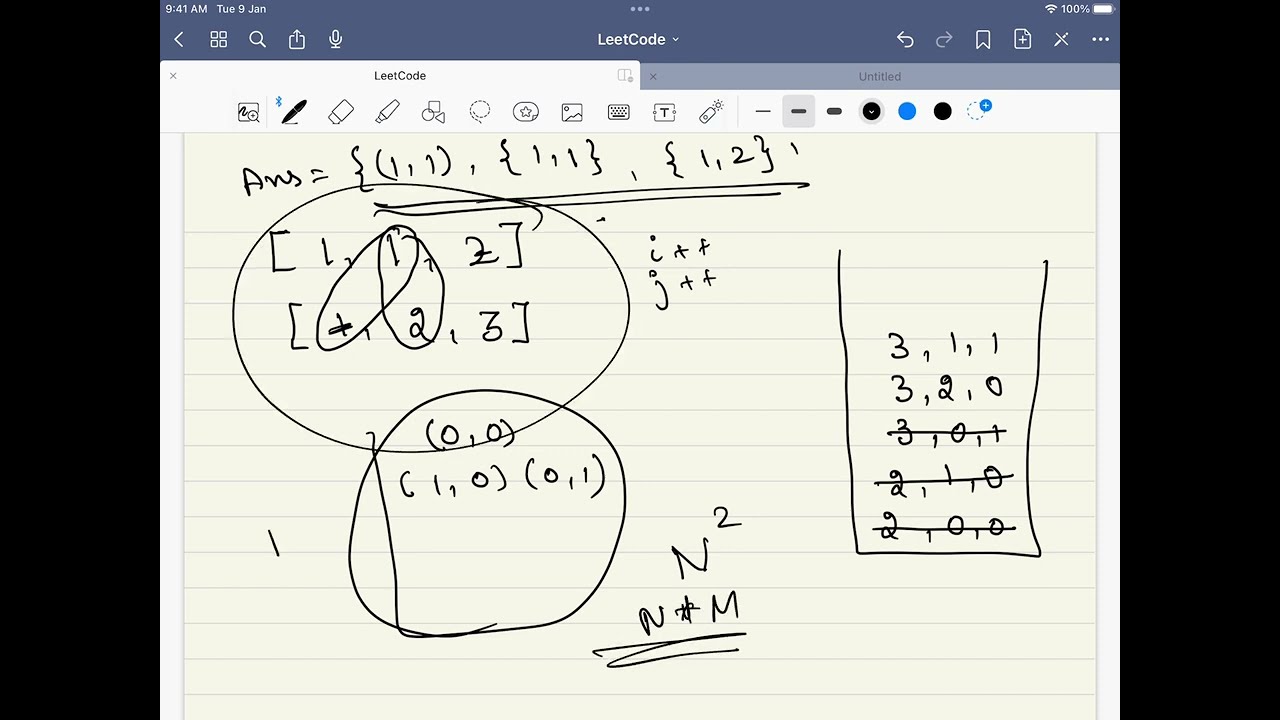 9:41 AM Tue 9 Jan
100%
LeetCode
LeetCode
Untitled
T
Ans = {(1,1), {1,1}, {1,2}
[ 1, 1, 2 ]
[ 1, 2, 3 ]
i++
j++
3, 1, 1
3, 2, 0
3, 0, 1
2, 1, 0
2, 0, 0
(0,0)
(1,0) (0,1)
1
N²
N * M